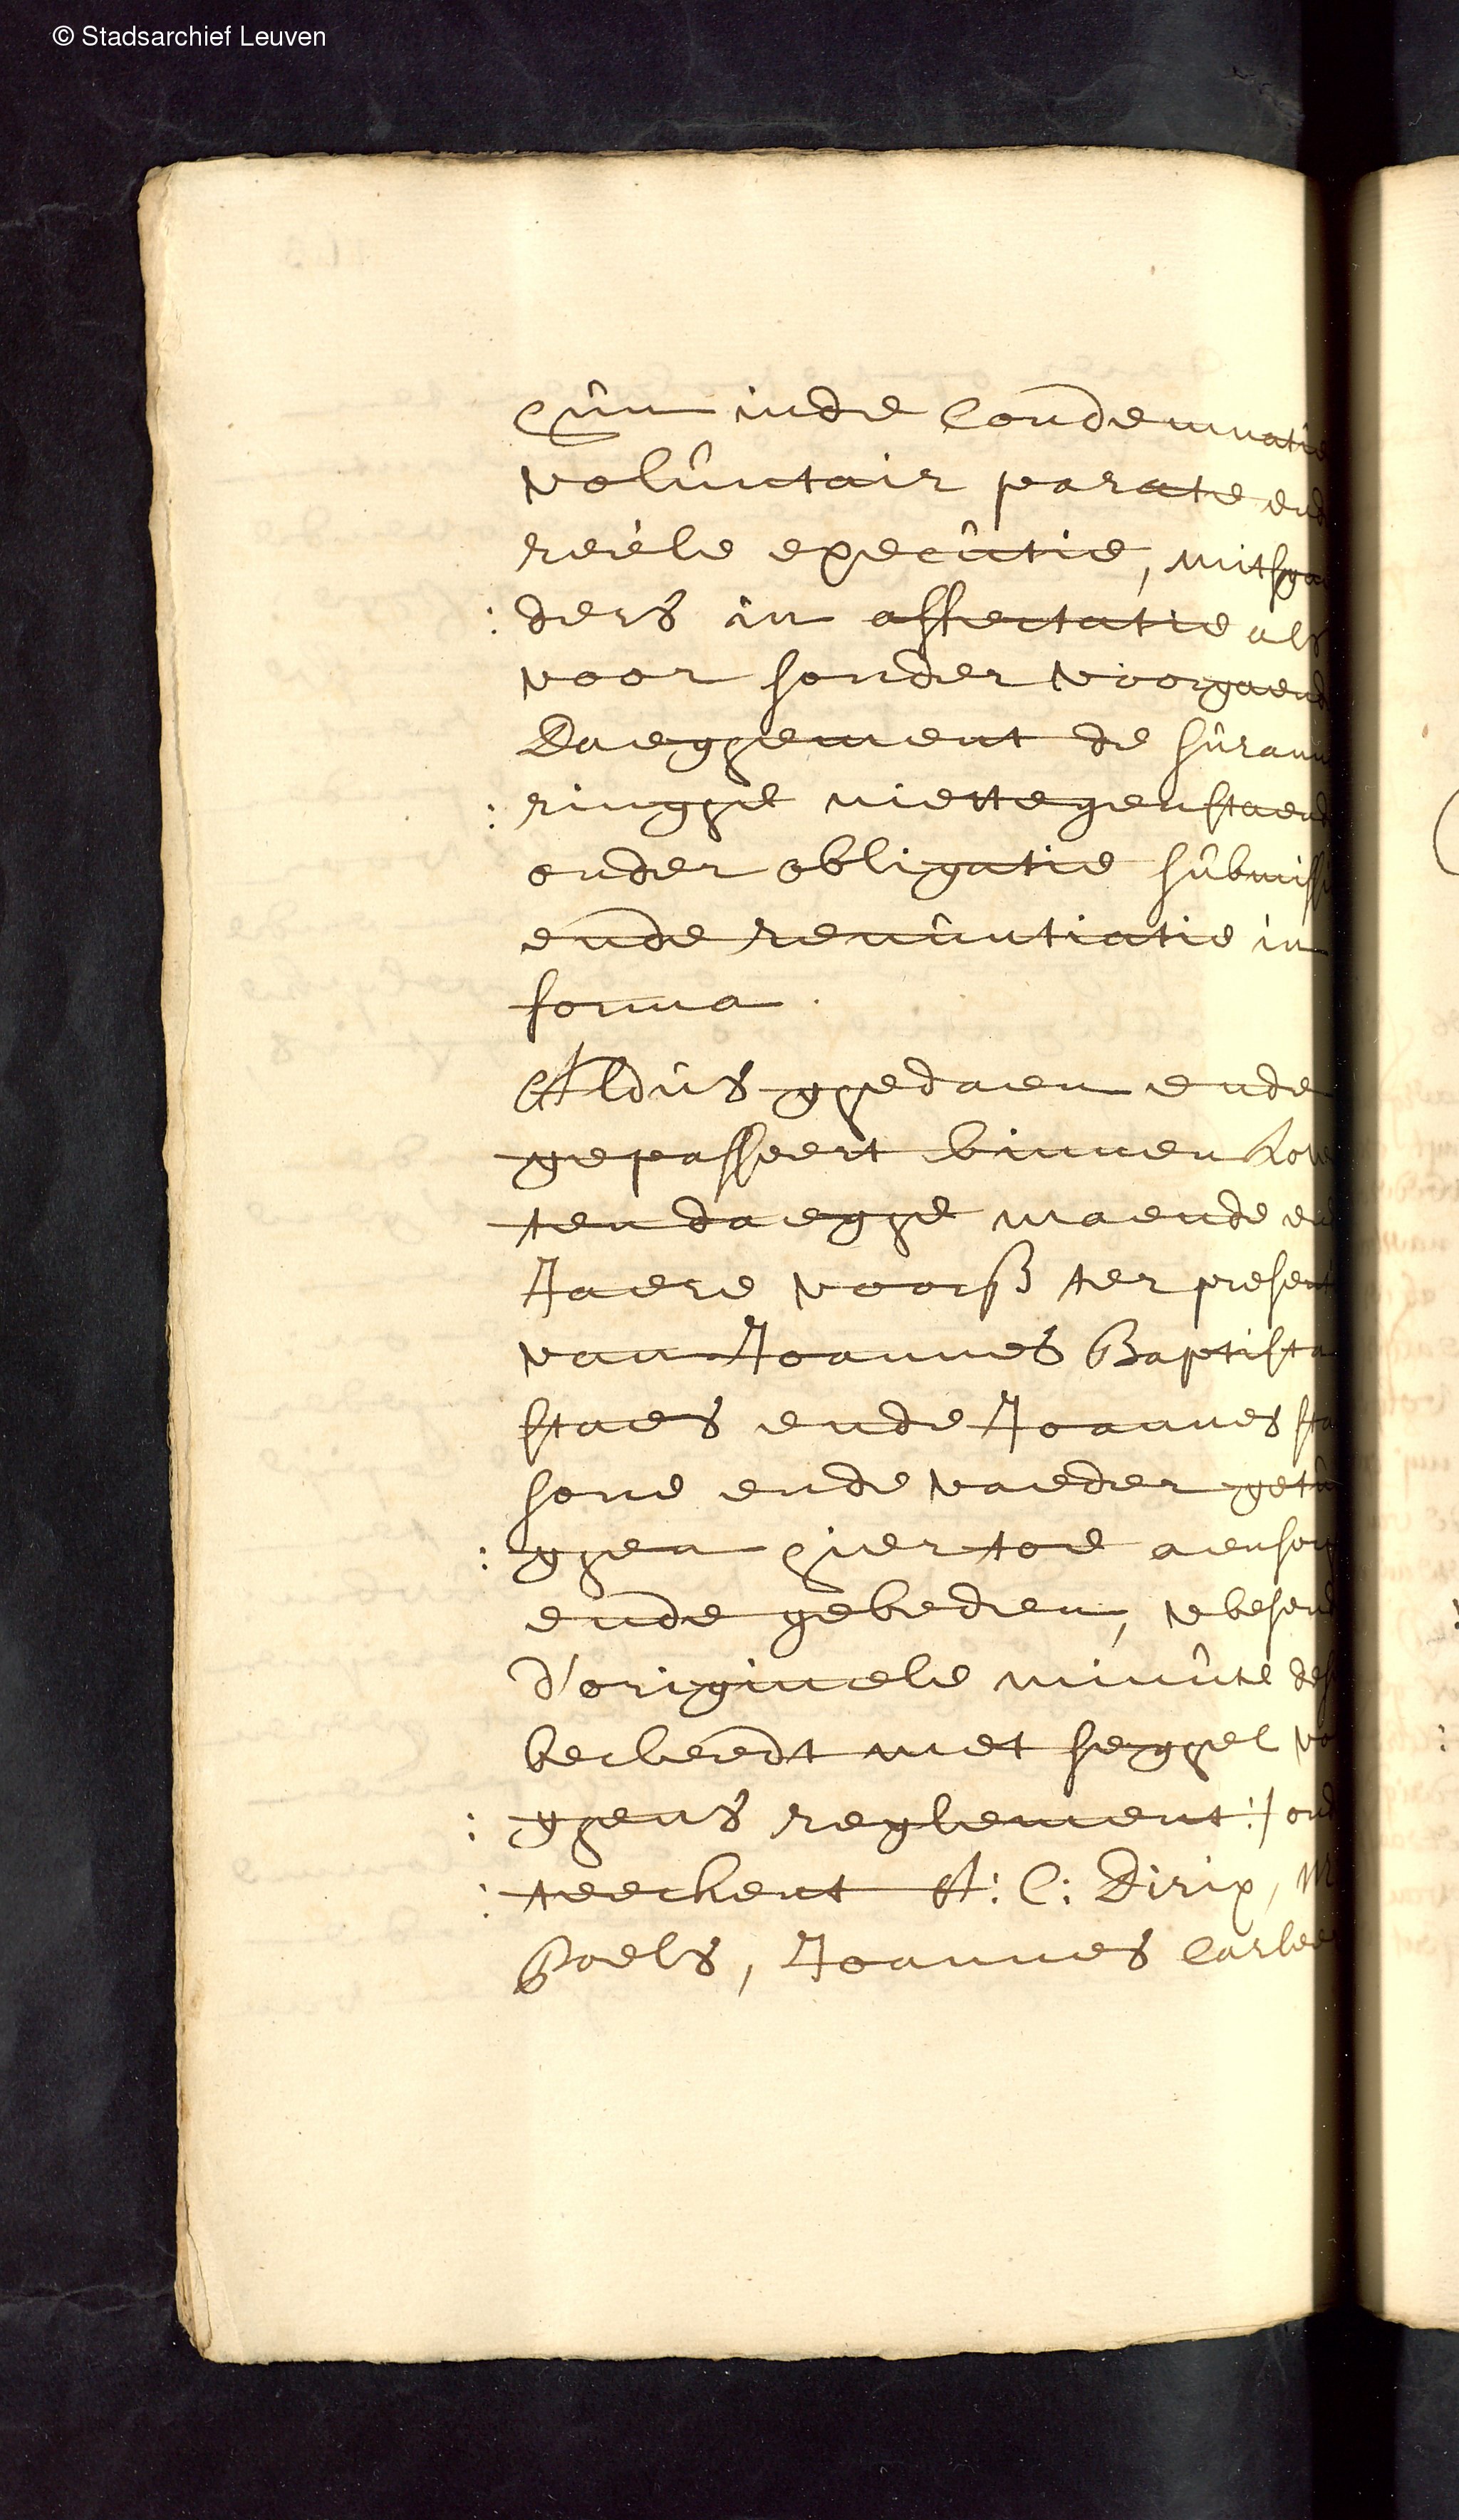 © Stadsarchief Leuven
hûn inde Condemnatie
volûntair parate end
reële execûtie, mitsga
: ders in affectatie als
voor sonder voorgaend
Daeghement de sûrann
: ringhe niettegenstaend
onder obligatie sûbmiss
ende renûntiatie in
forma.
Aldûs ghedaen ende
gepasseert binnen Lov
ten daeghe maende en
Jaere voors ter present
van Joannes Baptista
staes ende Joannes sta
sone ende vaeder getû
: ghen hier toe aensoc
ende gebeden, wesend
d'originele minûte des
becleedt met seghel vo
: ghens reglement :/ ond
: teeckent A: C: Dirix, M
Poels, Joannes Carlee